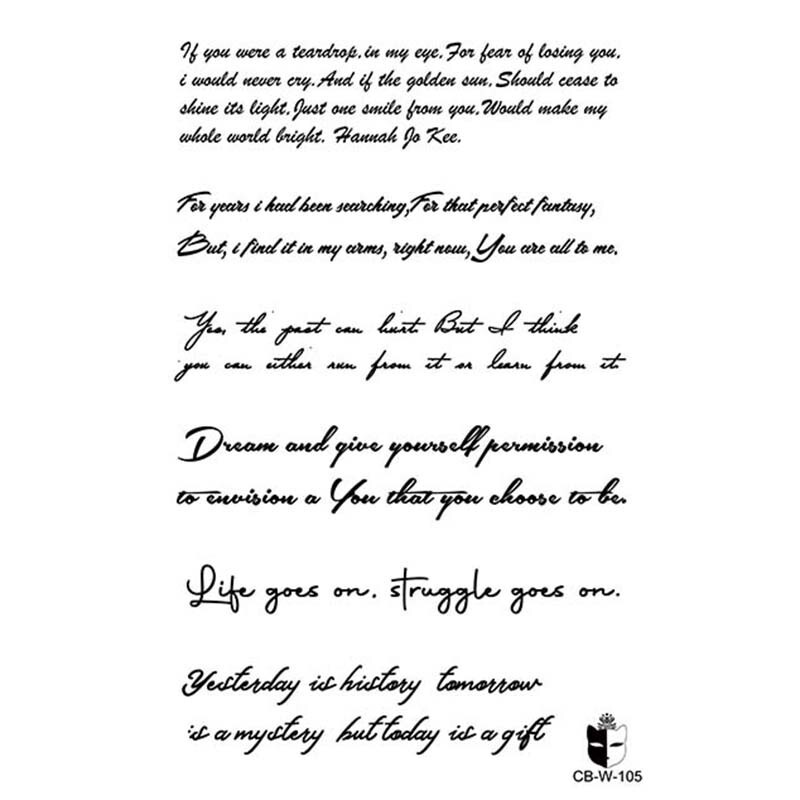 If you were a teardrop.in my eye.For fear of losing you.
i would never cry.And if the golden sun.Should cease to
shine its light.Just one smile from you.Would make my
whole world bright. Hannah Jo Kee.
For years i had been searching,For that perfect fantasy,
But, i find it in my arms, right now, You are all to me.
Yes, the past can hurt. But I think
you can either run from it or learn from it.
Dream and give yourself permission
to envision a You that you choose to be.
Life goes on. struggle goes on.
Yesterday is history tomorrow
is a mystery but today is a gift
CB-W-105